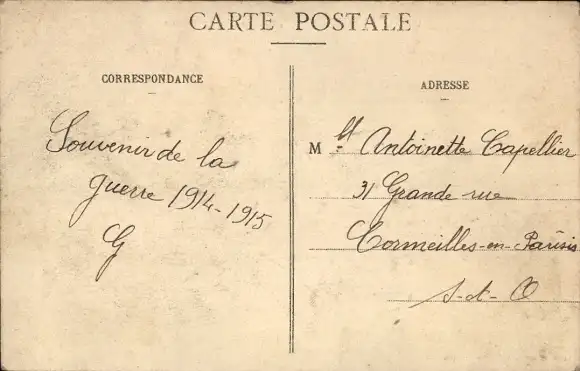 CARTE POSTALE
CORRESPONDANCE
Souvenir de la
guerre 1914-1915
G
ADRESSE
Mlle Antoinette Capellier
31 Grande rue
Cormeilles-en-Parisis
S-et-O